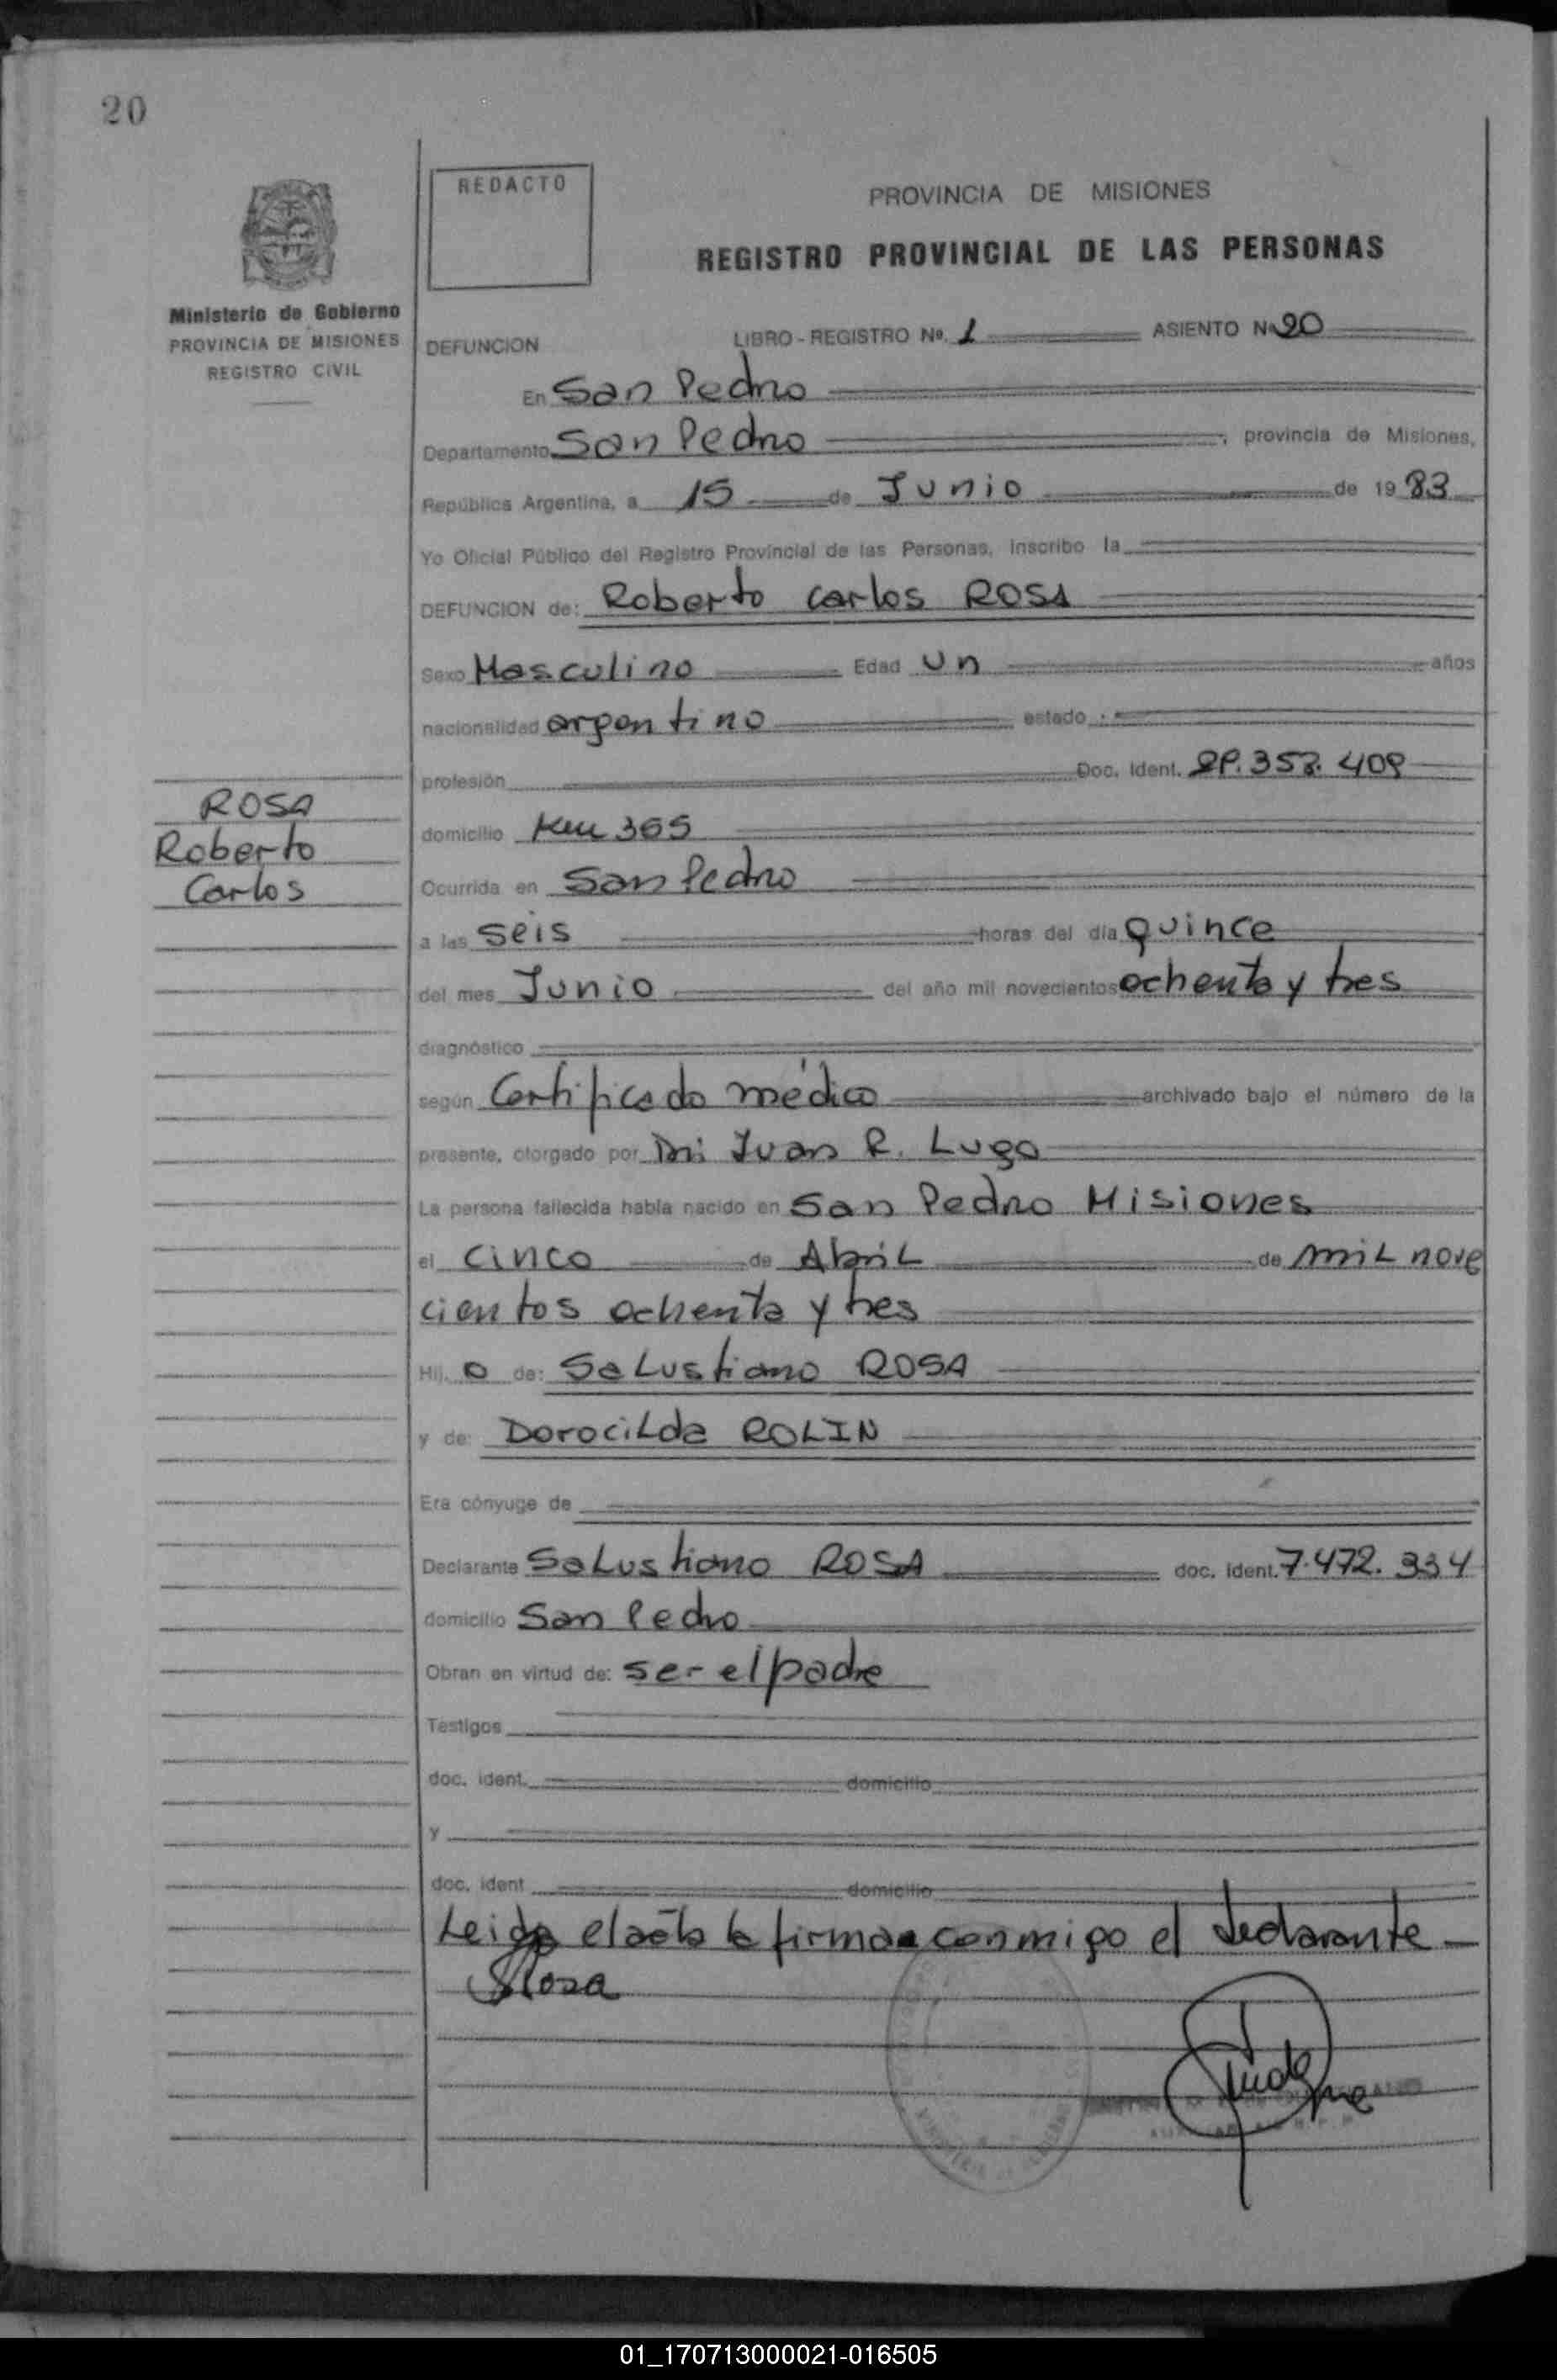 20
REDACTO
PROVINCIA DE MISIONES
REGISTRO PROVINCIAL DE LAS PERSONAS
Ministerio de Gobierno
PROVINCIA DE MISIONES
REGISTRO CIVIL
DEFUNCION LIBRO - REGISTRO Nº. 1 ASIENTO Nº 20
En San Pedro
Departamento San Pedro, provincia de Misiones,
República Argentina, a 15 de Junio de 1983
Yo Oficial Público del Registro Provincial de las Personas, inscribo la
DEFUNCION de: Roberto Carlos ROSA
Sexo Masculino Edad Un años
nacionalidad argentino estado
profesión Doc. Ident.
ROSA
Roberto
Carlos
domicilio Km 365
Ocurrida en San Pedro
a las seis horas del día quince
del mes Junio del año mil novecientos ochenta y tres
diagnóstico
según Certificado médico archivado bajo el número de la
presente, otorgado por Dr: Juan R. Lugo
La persona fallecida había nacido en San Pedro Misiones
el cinco de Abril de mil nove
cientos ochenta y tres
Hij o de: Salustiano ROSA
y de: Dorocilda ROLIN
Era cónyuge de
Declarante Salustiano ROSA doc. ident. 7.472.334
domicilio San Pedro
Obran en virtud de: ser el padre
Testigos
doc. ident. domicilio
y
doc. ident domicilio
Leida el acta la firma conmigo el declarante
SRosa
01_170713000021-016505